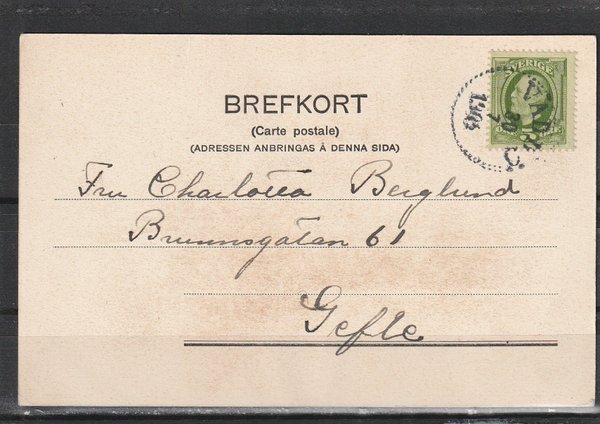 BREFKORT
(Carte postale)
(ADRESSEN ANBRINGAS Å DENNA SIDA)
SVERIGE
1903
Fru Charlotta Berglund
Brunnsgatan 61
Gefle